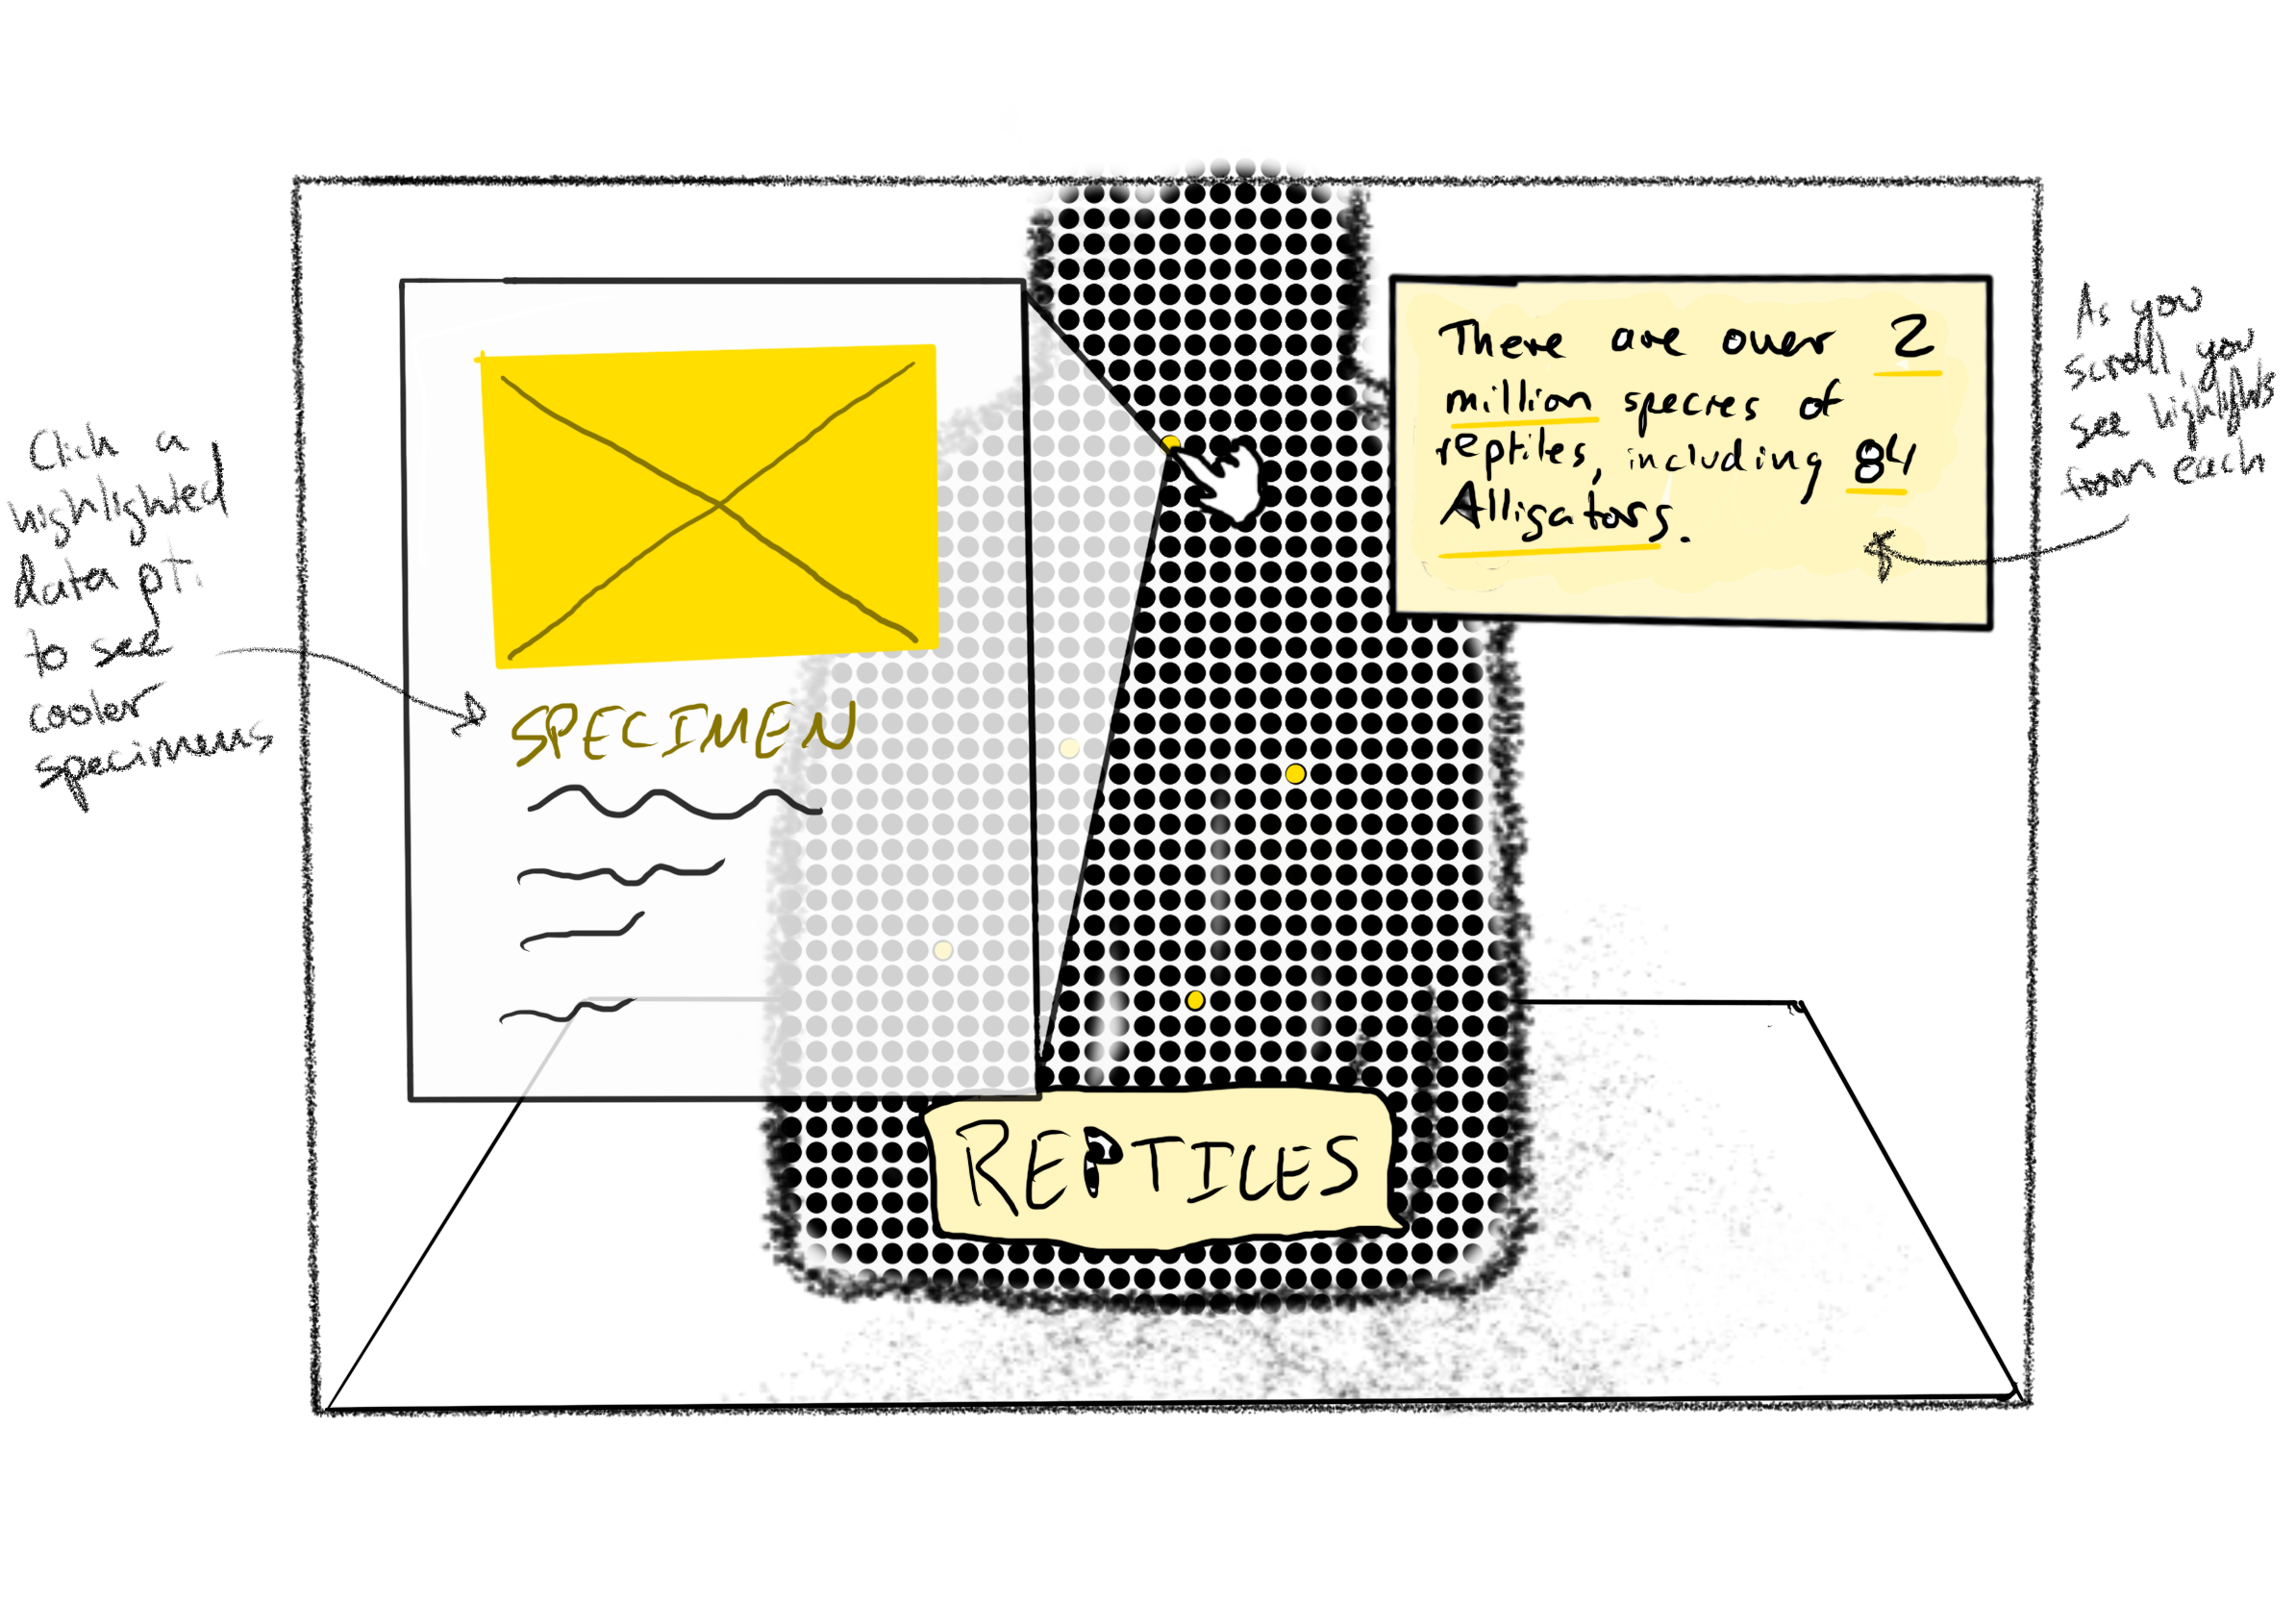 Click a
highlighted
data pt.
to see
cooler
specimens
SPECIMEN
There are over 2
million species of
reptiles, including 84
Alligators.
As you
scroll, you
see highlights
from each
REPTILES